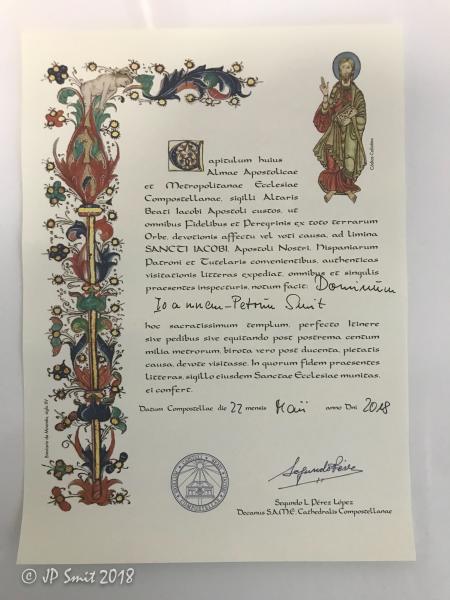 Codex Calixtino
Capitulum huius
Almae Apostolicae
et Metropolitanae Ecclesiae
Compostellanae, sigilli Altaris
Beati Iacobi Apostoli custos, ut
omnibus Fidelibus et Peregrinis ex toto terrarum
Orbe, devotionis affectu vel voti causa, ad limina
SANCTI IACOBI, Apostoli Nostri, Hispaniarum
Patroni et Tutelaris convenientibus, authenticas
visitationis litteras expediat, omnibus et singulis
praesentes inspecturis, notum facit: Dominum
Ioannem-Petrum Smit
hoc sacratissimum templum, perfecto Itinere
sive pedibus sive equitando post postrema centum
milia metrorum, birota vero post ducenta, pietatis
causa, devote visitasse. In quorum fidem praesentes
litteras, sigillo eiusdem Sanctae Ecclesiae munitas,
ei confert.
Datum Compostellae die 22 mensis Maii anno Dni 2018
Breviario de Miranda, siglo XV
Segundo L. Pérez López
Decanus S.A.M.E. Cathedralis Compostellanae
© JP Smit 2018